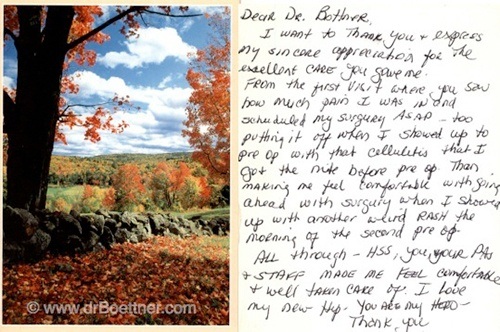 © www.drBoettner.com
Dear Dr. Bottner,
I want to Thank you & express
my sincere appreciation for the
excellent care you gave me.
From the first visit where you saw
how much pain I was in and
scheduled my surgery ASAP - too
putting it off when I showed up to
pre op with that cellulitis that I
got the nite before pre op. Than
making me feel comfortable with going
ahead with surgery when I showed
up with another weird RASH the
morning of the second pre op
All through - HSS, you, your PAs
& STAFF MADE ME FEEL comfortable
& well taken care of. I love
my new Hip. You are my HERO -
Thank you